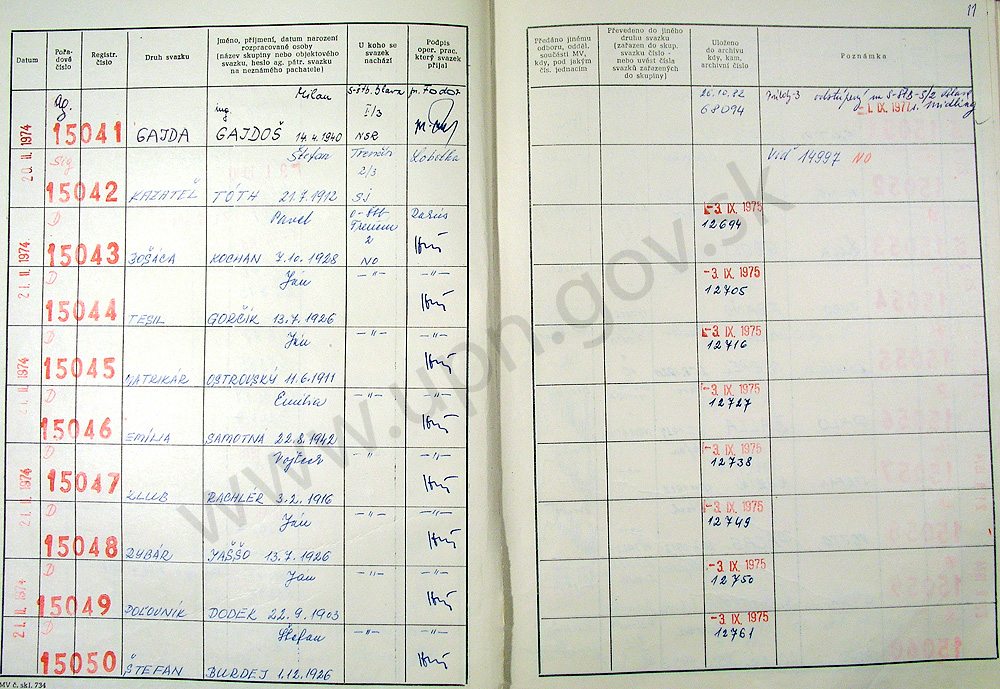 11
Datum
Pořa-
dové
číslo
Registr.
číslo
Druh svazku
Jméno, příjmení, datum narození
rozpracované osoby
(název skupiny nebo objektového
svazku, heslo ag. pátr. svazku
na neznámého pachatele)
U koho se
svazek
nachází
Podpis
oper. prac.
který svazek
přijal
Předáno jinému
odboru, odděl.
součásti MV,
kdy, pod jakým
čís. jednacím
Převedeno do jiného
druhu svazku
(zařazen do skup.
svazku číslo -
nebo uvést čísla
svazků zařazených
do skupiny)
Uloženo
do archivu
kdy, kam,
archivní číslo
Poznámka
20. II. 1974
Ag.
Milan
ing
15041 GAJDA GAJDOŠ 14.4.1940
I/3
NSR
26.10.82
68094
1. IX. 1977
Sig
Štefan
Trenčín
Lobotka
15042 KAZATEĽ TÓTH 21.7.1912
2/3
SI
Viď 14997 NO
D
Pavel
2
21. II. 1974
15043 BOŠÁCA KOCHAN 7.10.1928
NO
-3. IX. 1975
12694
D
Ján
-"- -"-
15044 TESIL GORČÍK 13.7.1926
-3. IX. 1975
12705
D
Ján
-"- -"-
21. II. 1974
15045 MATRIKÁR OSTROVSKÝ 11.6.1911
-3. IX. 1975
12716
D
Emília
-"- -"-
15046 EMÍLIA SAMOTNÁ 22.8.1942
-3. IX. 1975
12727
D
Vojtech
-"- -"-
21. II. 1974
15047 KLUB RACHLER 3.2.1916
-3. IX. 1975
12738
D
Ján
-"- -"-
15048 RYBÁR JAŠŠO 13.7.1926
-3. IX. 1975
12749
D
Ján
-"- -"-
21. II. 1974
15049 POĽOVNÍK DODEK 22.9.1903
-3. IX. 1975
12750
D
Štefan
-"- -"-
15050 ŠTEFAN BURDEJ 1.12.1926
-3. IX. 1975
12761
MV č. skl. 734
www.upn.gov.sk